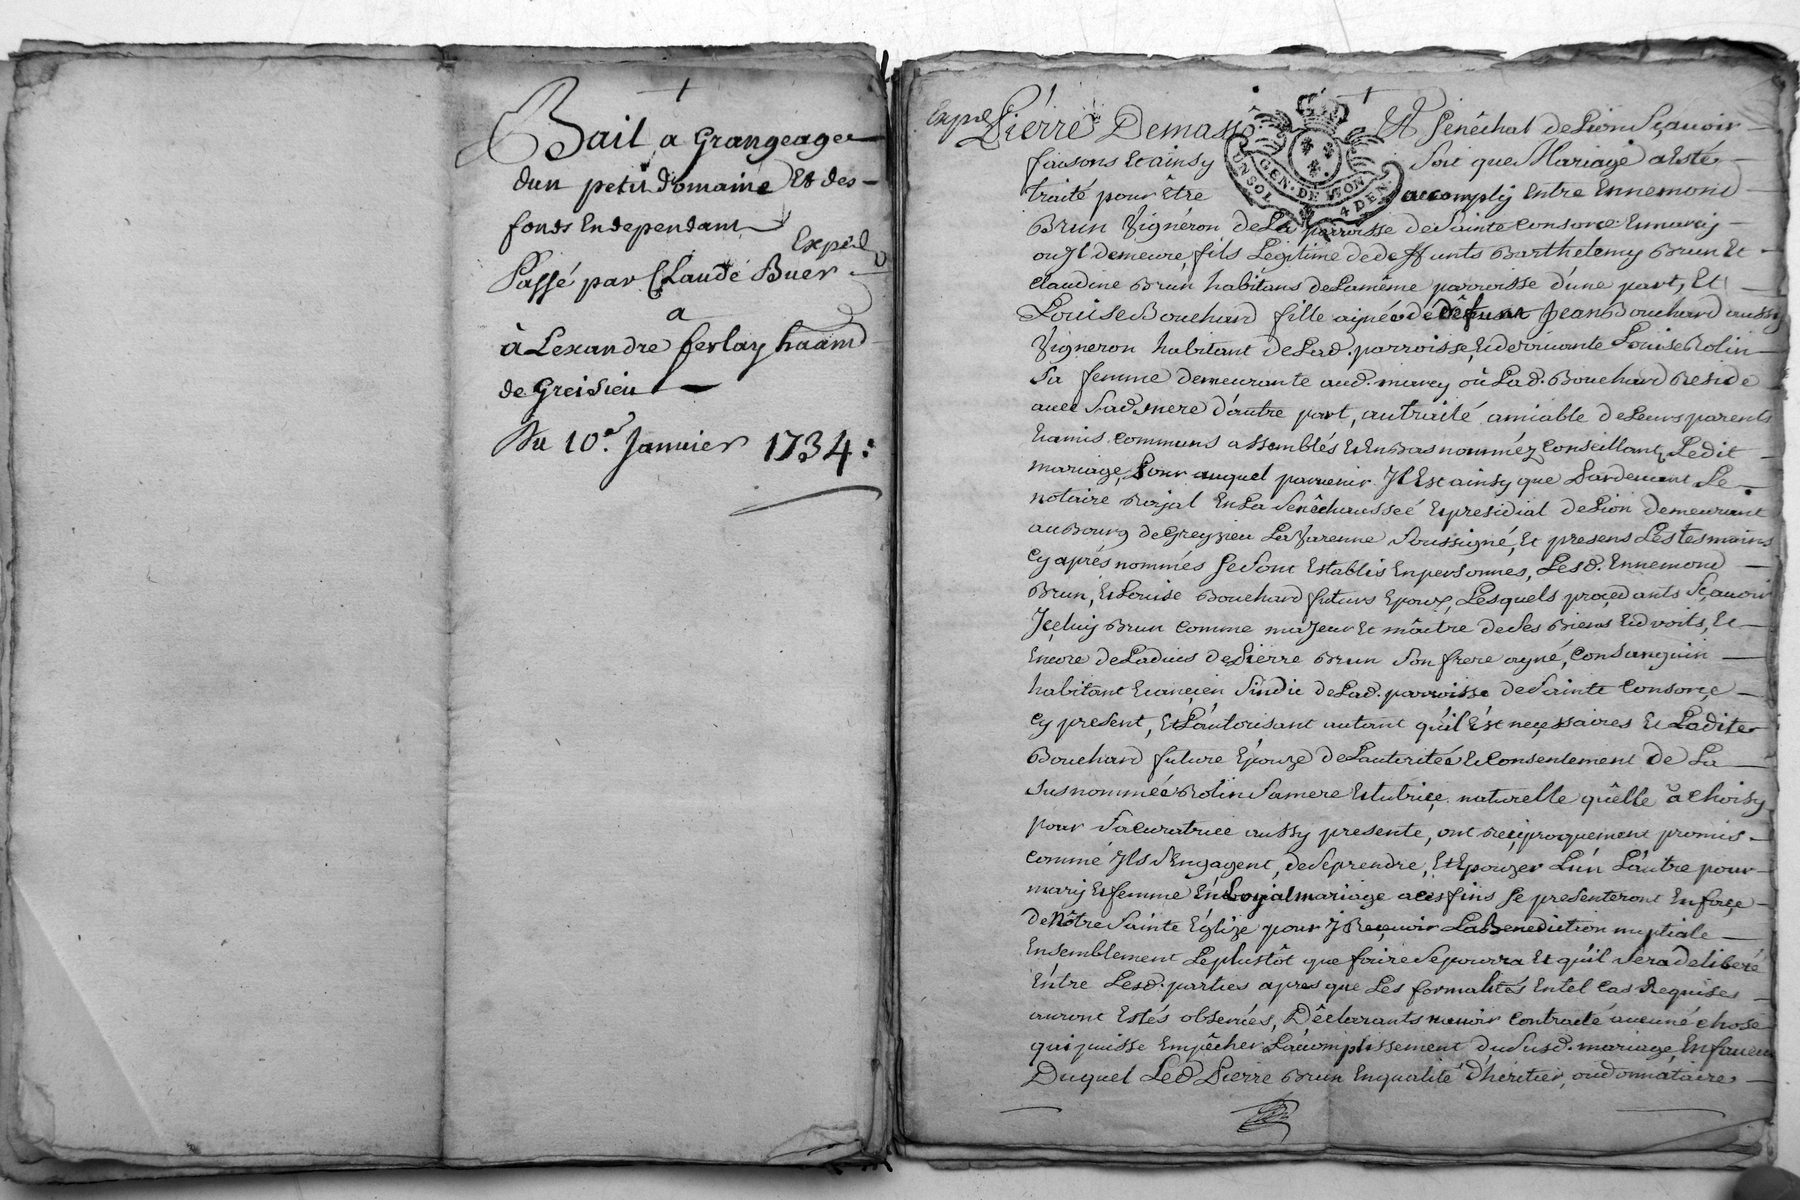 Bail a Grangeage
dun petit Domaine Et des
fonds Endependant
Expéd
Passé par Claude Buer
a
àLexandre ferlay haānd
de Greisieu
Du 10e. Janvier 1734:
Expié
Pierre Demas Et Senêchal deLion Sçavoir
faisons Et ainsy Soit que Mariage a Esté
traité pour être accomply Entre Ennemond
Brun Vignéron deLa parroisse deSainte Consorce Enmarcy
ou Jl demeure, fils Légitime dedeffunts Barthelemy Brun Et
Claudine Brun habitans deLamême parroisse dune part, Et
Louise Bouchard fille aynée de défunt Jean Bouchard aussy
Vigneron habitant deLad. parroisse, Et de vivante Louise Rolin
Sa femme demeurante aud. marcy où Lad. Bouchard Reside
avec Sad. mere d'autre part, autraité amiable deLeurs parents
Et amis communs assemblés Et EnBas nomméz Conseillant Ledit
mariage, Pour auquel parvenir Jl Est ainsy que Pardevant Le
notaire Royal EnLa Senêchausseé Et presidial deLion demeurant
auBourg deGreyzieu LaVarenne Soussigné, Et presens Les tesmoins
cy aprés nommés Se Sont Establis Enpersonnes, Lesd. Ennemond
Brun, Et Louise Bouchard futurs Epoux, Lesquels proçedants Sçavoir
Jçeluy Brun comme majeur Et mâitre deSes Biens Et droits, Et
Encore deLadvis dePierre Brun Son frere ayné, Consanguin
habitant Et ançien Sindic deLad. parroisse deSainte Consorçe
cy present, Et Láutorisant autant qu'il Est neçessaires Et Ladite
Bouchard future Epouze deLautorité Et Consentement de La
Susnommée Rolin Samere Et tutriçe naturelle quêlle à choisy
pour Sa curatrice aussy presente, ont Reçiproquement promis
commé Jls S'Engagent, deSeprendre, Et Epouzer L'un Láutre pour
mary Et femme En Loyal mariage a ces fins Se presenteront En façe
deNôtre Sainte Églize pour y Reçevoir La Benediction nuptiale
Ensemblement Leplustôt que faire Sepourra Et qu'il Sera deliberé
Éntre Lesd. parties apres que Les formalités Entel cas Requises
auront Estés observées, Déclarants navoir contracté aucune chose
qui puisse Empêcher Láccomplissement du Susd. mariage, En faveur
Duquel Led Pierre Brun Enqualité d'heritier, ou donnâtaire